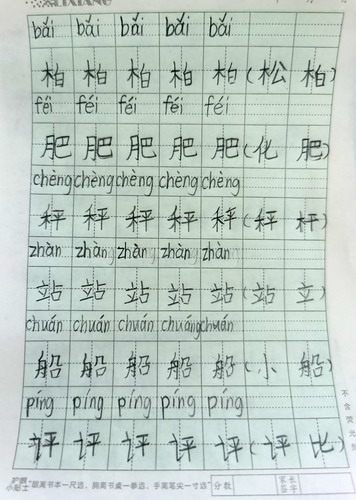 LIXIANG
bǎi bǎi bǎi bǎi bǎi
柏 柏 柏 柏 柏(松 柏)
féi féi féi féi féi
肥 肥 肥 肥 肥(化 肥)
chèng chèng chèng chèng chèng
秤 秤 秤 秤 秤(秤 杆)
zhàn zhàn zhàn zhàn zhàn
站 站 站 站 站(站 立)
chuán chuán chuán chuáng chuán
船 船 船 船 船(小 船)
píng píng píng píng píng
评 评 评 评 评(评 比)
不含荧光
护眼小贴士 "眼离书本一尺远,胸离书桌一拳远,手离笔尖一寸远" 分数 家长签字